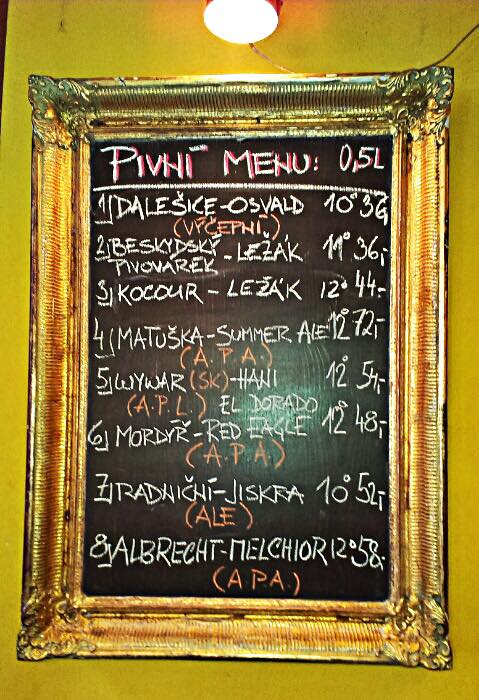 PIVNÍ MENU: 0,5L
1) DALEŠICE-OSVALD 10° 36,
(VÝČEPNÍ)
2) BESKYDSKÝ PIVOVÁREK - LEŽÁK 11° 36,-
3) KOCOUR - LEŽÁK 12° 44.-
4) MATUŠKA-SUMMER ALE 12° 72,-
(A.P.A.)
5) WYWAR (SK)-HANI 12° 54,-
(A.P.L.) EL DORADO
6) MORDYŘ-RED EAGLE 12° 48,-
(A.P.A)
7) RADNIČNÍ-JISKRA 10° 52,-
(ALE)
8) ALBRECHT-MELCHIOR 12° 58.-
(A.P.A.)